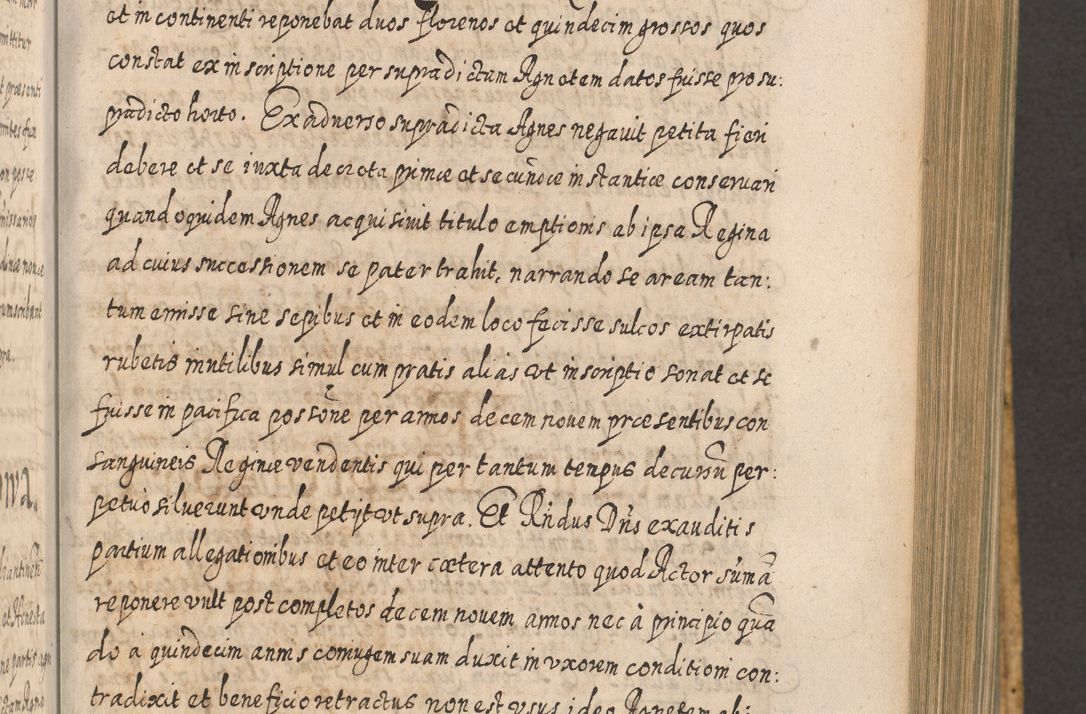 et in continenti reponebat duos florenos et quindecim grossos quos
constat ex inscriptione per supradictam Agnetem datos fuisse pro su:
pradicto horto. Ex adverso supradicta Agnes negavit petita fieri
debere et se iuxta decreta primæ et secundæ instantiæ conservari
quandoquidem Agnes acquisivit titulo emptionis ab ipsa Regina
ad cuius successionem se pater trahit, narrando se aream tan:
tum emisse sine sepibus et in eodem loco fecisse sulcos extirpatis
rubetis inutilibus simul cum pratis alias ut inscriptio sonat et se
fuisse in pacifica possōne per annos decem novem præsentibus con
sanguineis Reginæ vendentis qui per tantum tempus decursu per:
petuo siluerunt unde petijt ut supra. Et Rn̄dus Dn̄s exauditis
partium allegationibus et eo inter cætera attento quod Actor sūmā
reponere vult post completos decem novem annos nec à principio quā
do à quindecim annis coniugem suam duxit in uxorem conditioni con:
tradixit et beneficio retractus non est usus ideo Agnetem ab: